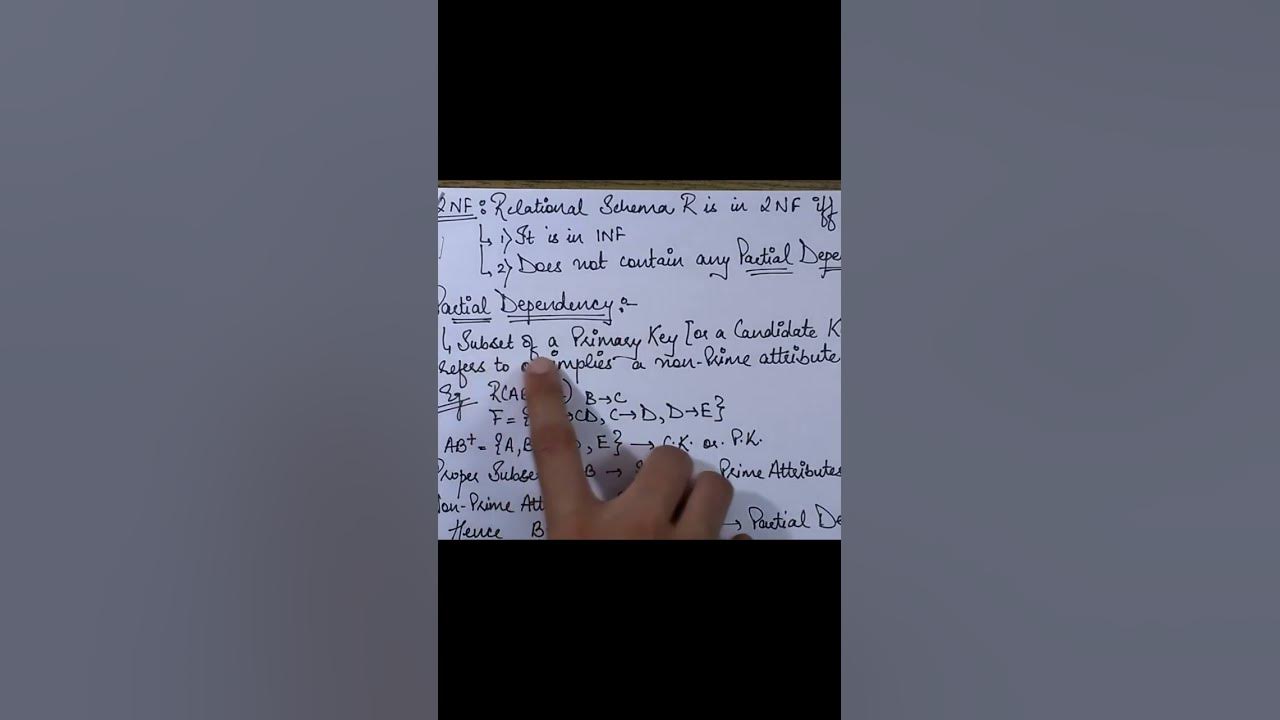 2NF : Relational Schema R is in 2NF iff
1) It is in 1NF
2) Does not contain any Partial Depe
Partial Dependency :-
Subset of a Primary Key [or a Candidate K
refers to implies a non-Prime attribute
Eg R(AB ) B→C
F = { CD, C→D, D→E}
AB+ = {A, B , E} → C.K. or P.K.
Proper Subse B → Prime Attributes
Non-Prime Att
Hence B → Partial De